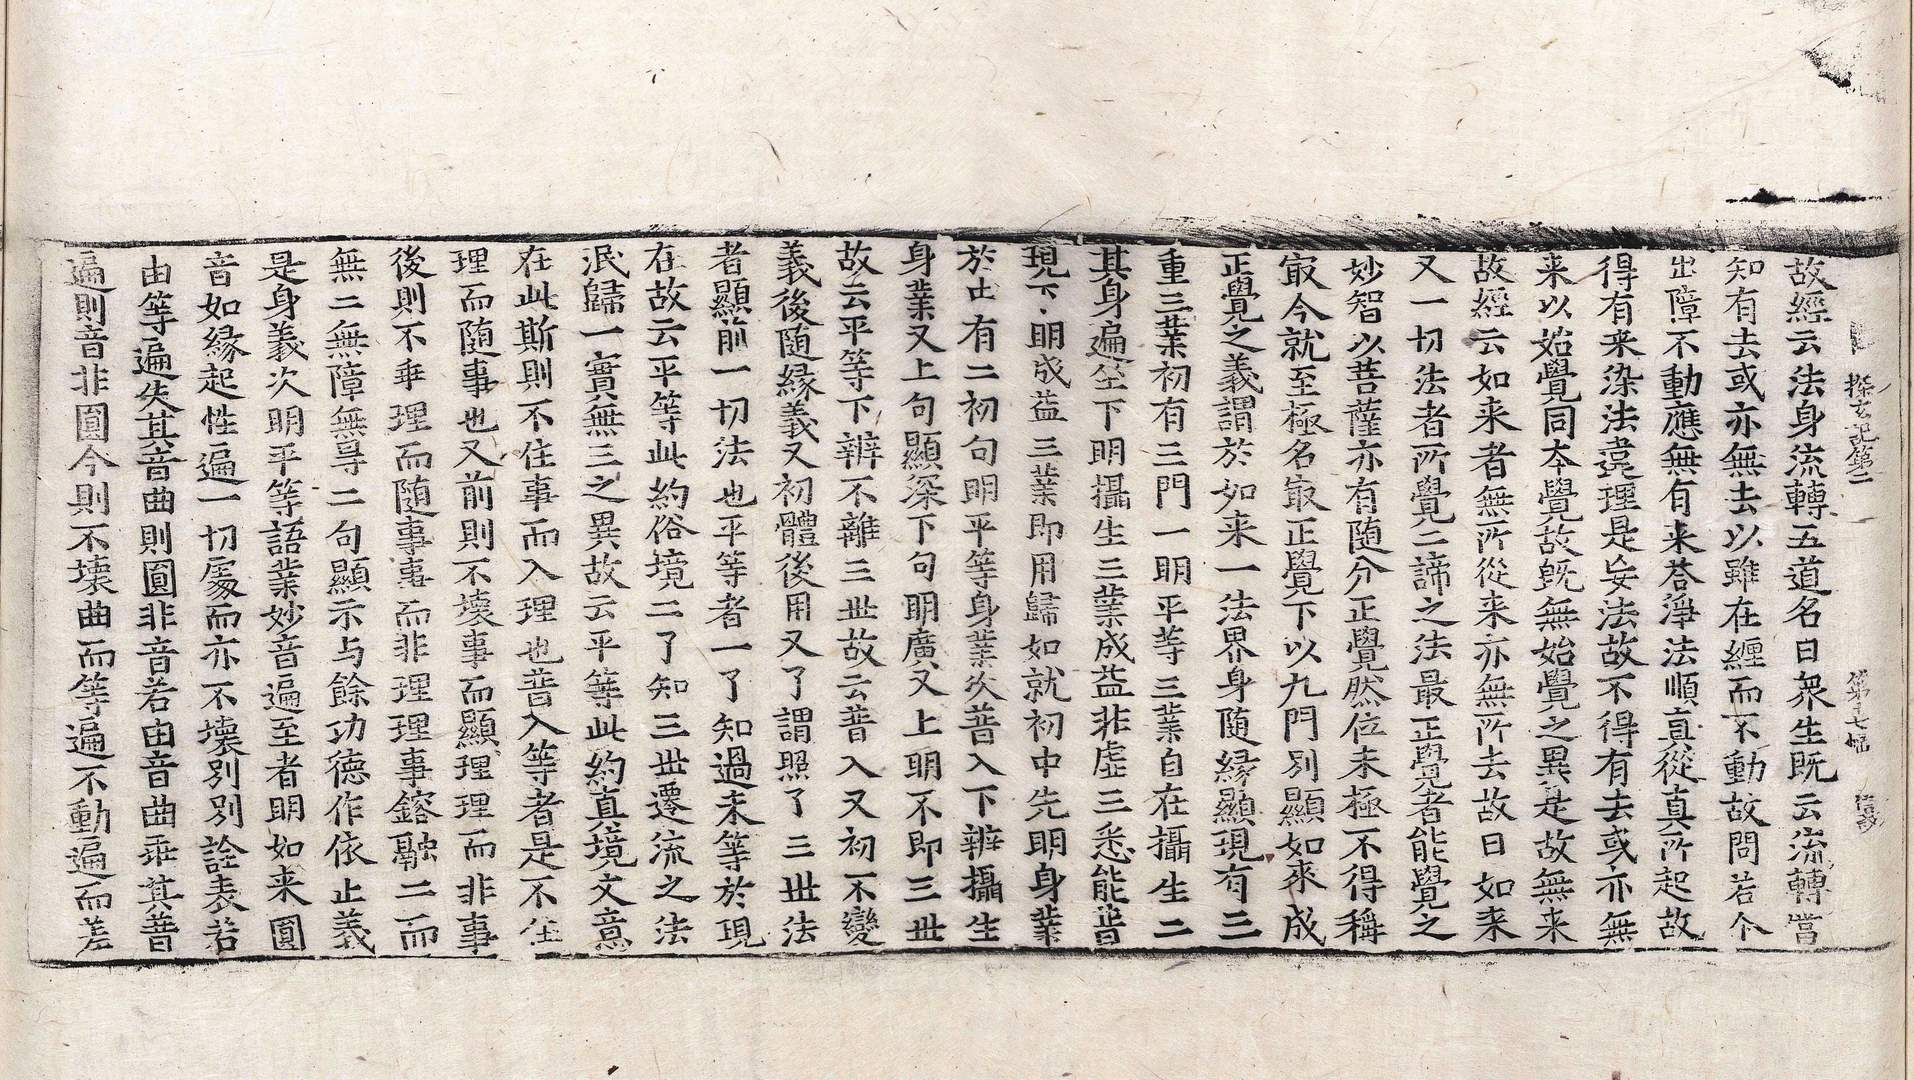 探玄記第二 第十七幅
故經云法身流轉五道名曰衆生旣云流轉當
知有去或亦無去以雖在纏而不動故問若今
出障不動應無有来荅淨法順真從真所起故
得有来染法違理是妄法故不得有去或亦無
来以始覺同本覺故旣無始覺之異是故無来
故經云如来者無所從来亦無所去故曰如来
又一切法者所覺二諦之法最正覺者能覺之
妙智以菩薩亦有随分正覺然位未極不得稱
㝡今就至極名㝡正覺下以九門別顯如来成
正覺之義謂於如来一法界身随緣顯現有三
重三業初有三門一明平等三業自在攝生二
其身遍坐下明攝生三業成益非虛三悉能普
現下明成益三業即用歸如就初中先明身業
於中有二初句明平等身業次普入下辨攝生
身業又上句顯深下句明廣又上明不即三丗
故云平等下辨不離三丗故云普入又初不變
義後随緣義又初體後用又了謂照了三丗法
者顯前一切法也平等者一了知過未等於現
在故云平等此約俗境二了知三丗遷流之法
泯歸一實無三之異故云平等此約真境文意
在此斯則不住事而入理也普入等者是不住
理而随事也又前則不壞事而顯理理而非事
後則不乖理而随事事而非理理事鎔融二而
無二無障無㝵二句顯示与餘功德作依止義
是身義次明平等語業妙音遍至者明如来圓
音如緣起性遍一切處而亦不壞別別詮表若
由等遍失其音曲則圓非音若由音曲乖其普
遍則音非圓今則不壞曲而等遍不動遍而差